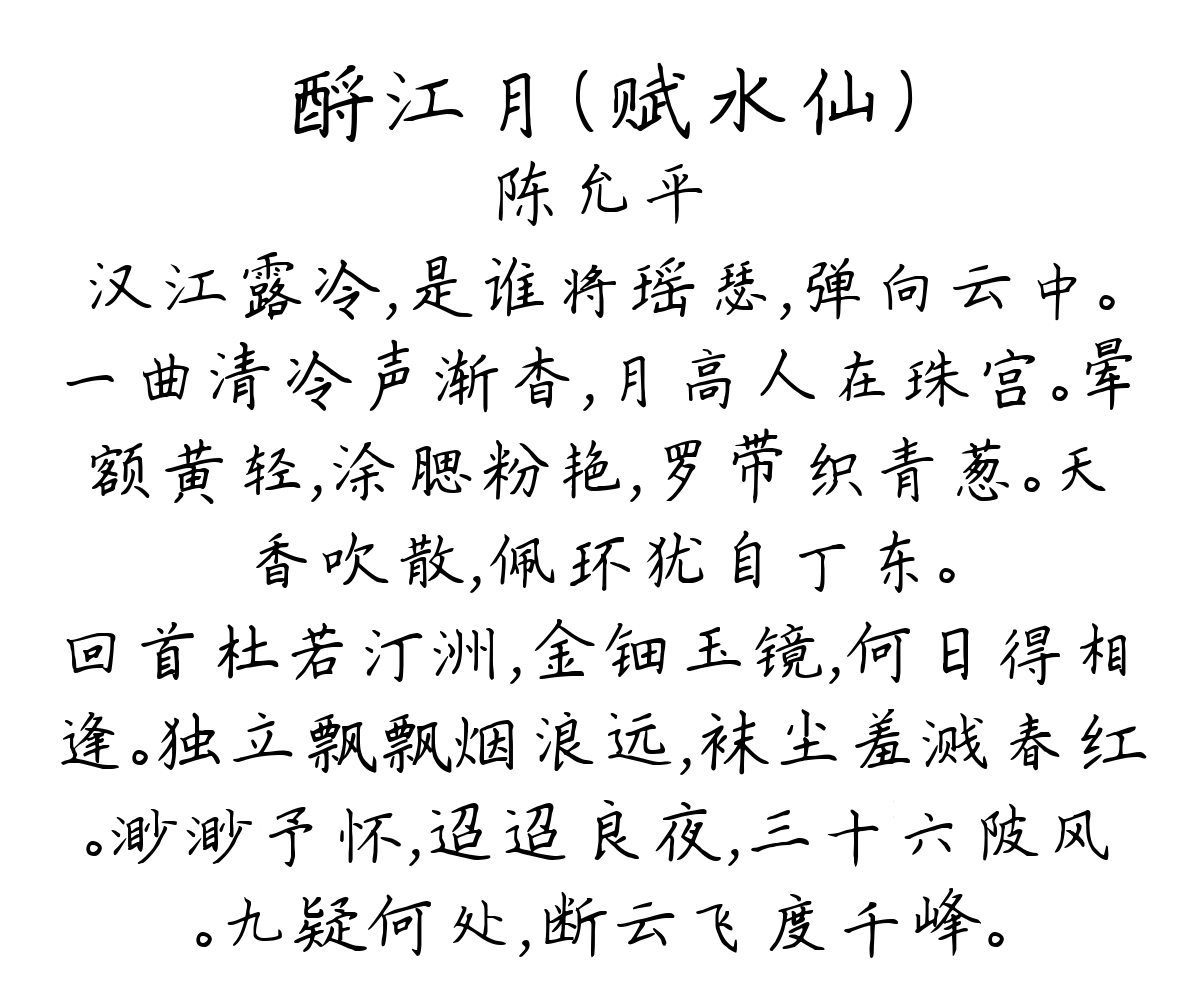 酹江月(赋水仙)
陈允平
汉江露冷,是谁将瑶瑟,弹向云中。
一曲清冷声渐杳,月高人在珠宫。晕
额黄轻,涂腮粉艳,罗带织青葱。天
香吹散,佩环犹自丁东。
回首杜若汀洲,金钿玉镜,何日得相
逢。独立飘飘烟浪远,袜尘羞溅春红
。渺渺予怀,迢迢良夜,三十六陂风
。九疑何处,断云飞度千峰。